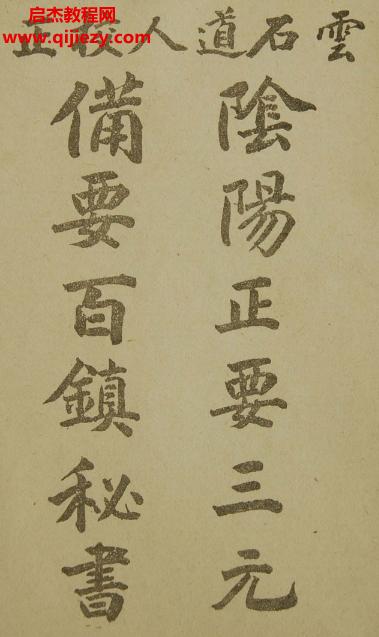 启杰教程网
www.qijiezy.com
雲石道人正
陰陽正要三元
備要百鎮秘書